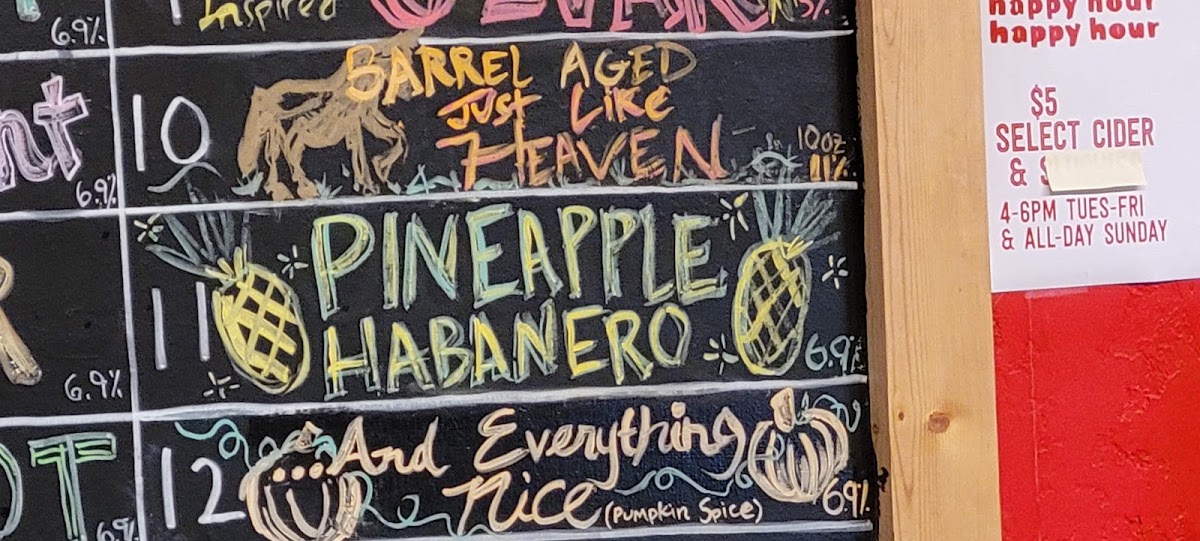 Inspired
6.9%
10
BARREL AGED
Just Like
HEAVEN
10oz
11%
6.9%
11
PINEAPPLE
HABANERO
6.9%
6.9%
12
And Everything
Nice (Pumpkin Spice)
6.9%
6.9%
happy hour
happy hour
$5
SELECT CIDER
& $
4-6PM TUES-FRI
& ALL-DAY SUNDAY